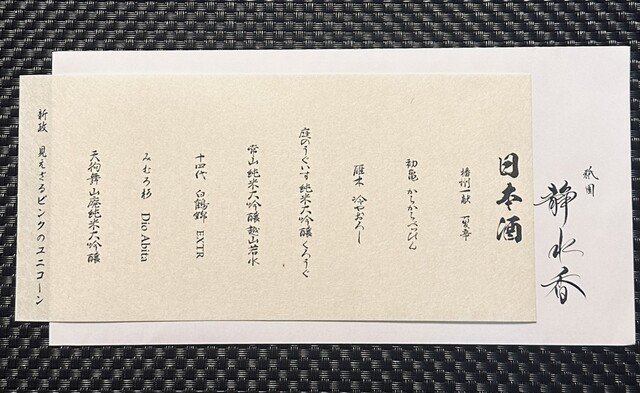 祇園
静水香
日本酒
播州一献 夏辛
初亀 からからべっぴん
雁木 冷やおろし
庭のうぐいす 純米大吟醸 くろうぐ
常山 純米大吟醸 越山若水
十四代 白鶴錦 EXTR
みむろ杉 Dio Abita
天狗舞 山廃純米大吟醸
新政 見えざるピンクのユニコーン